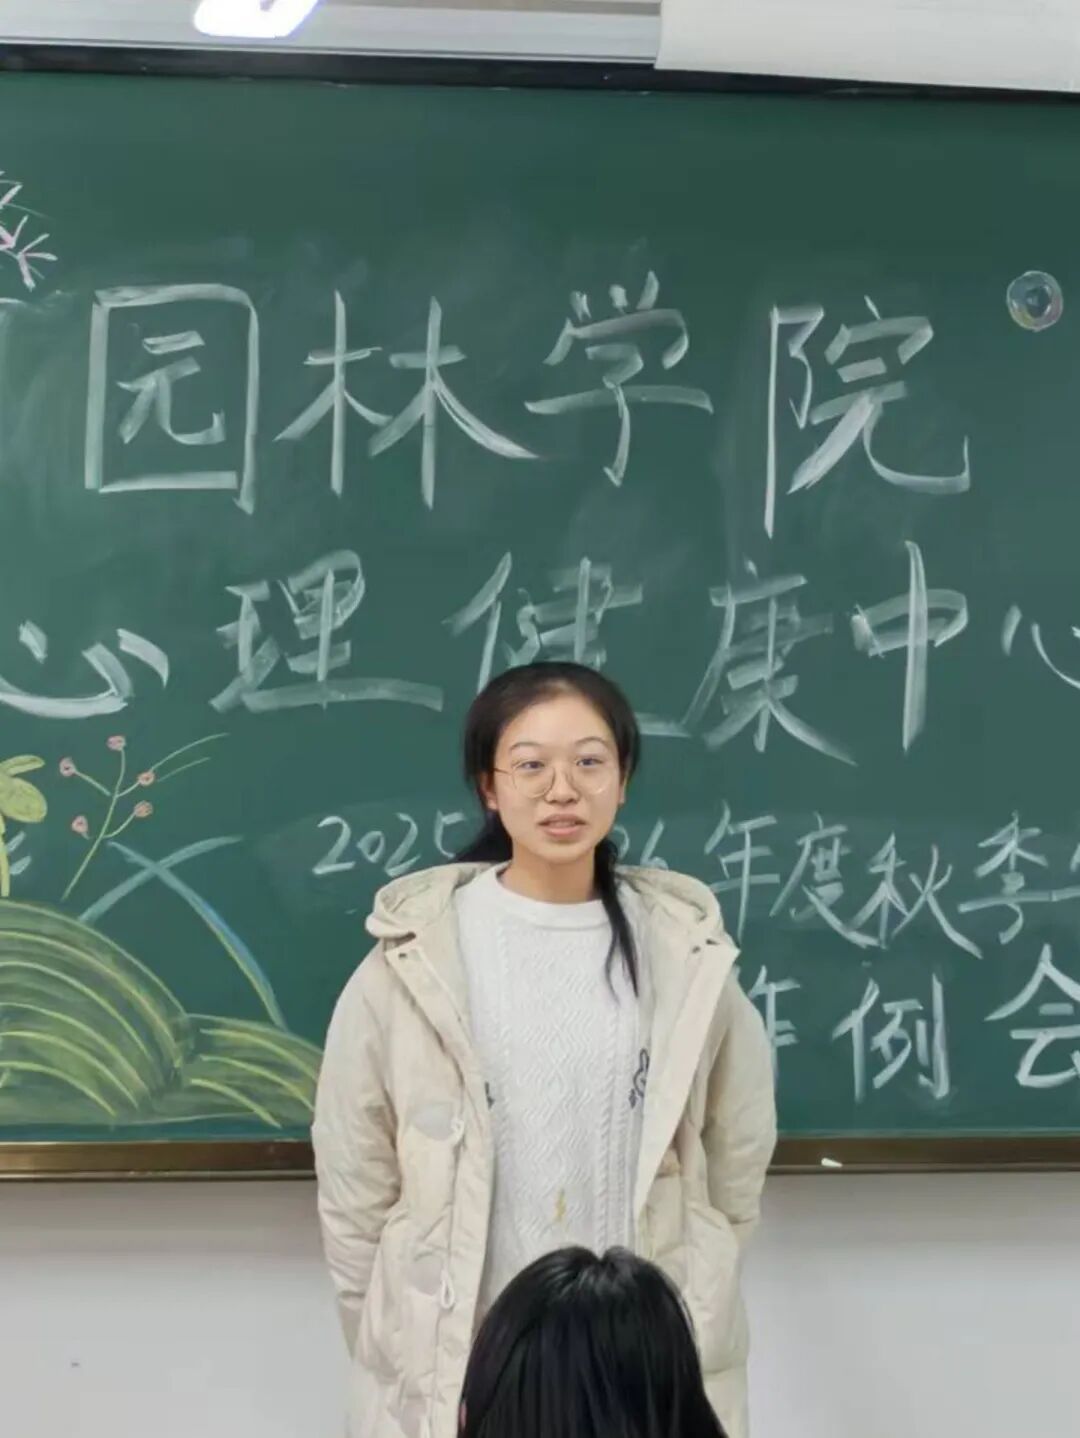 园林学院
心理健康中心
2025 26年度秋季
作例会